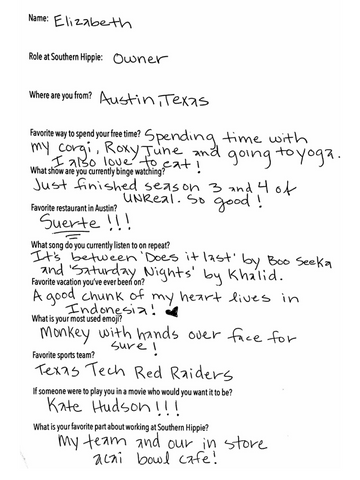 Name: Elizabeth
Role at Southern Hippie: Owner
Where are you from? Austin, Texas
Favorite way to spend your free time? Spending time with
my corgi, Roxy June and going to yoga.
I also love to eat!
What show are you currently binge watching?
Just finished season 3 and 4 of
UNReal. So good!
Favorite restaurant in Austin?
Suerte!!!
What song do you currently listen to on repeat?
It's between 'Does it last' by Boo Seeka
and 'Saturday Nights' by Khalid.
Favorite vacation you've ever been on?
A good chunk of my heart lives in
Indonesia! ♥
What is your most used emoji?
Monkey with hands over face for
sure!
Favorite sports team?
Texas Tech Red Raiders
If someone were to play you in a movie who would you want it to be?
Kate Hudson!!!
What is your favorite part about working at Southern Hippie?
My team and our in store
acai bowl cafe!